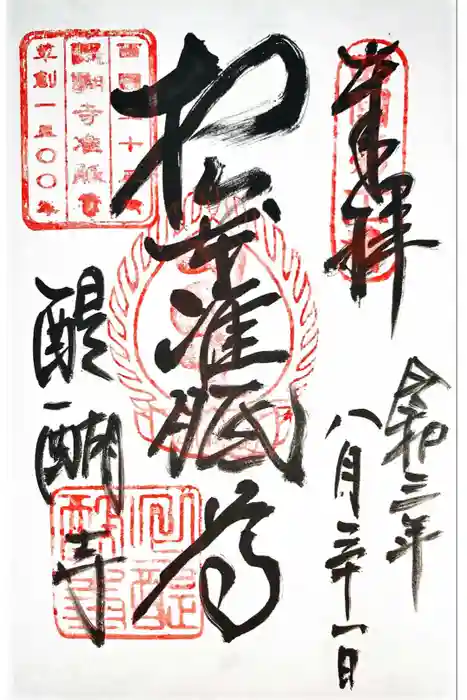 奉拝
令和三年
八月二十一日
根本准胝尊
醍醐寺
西国三十三所
醍醐寺准胝堂
草創一三〇〇年